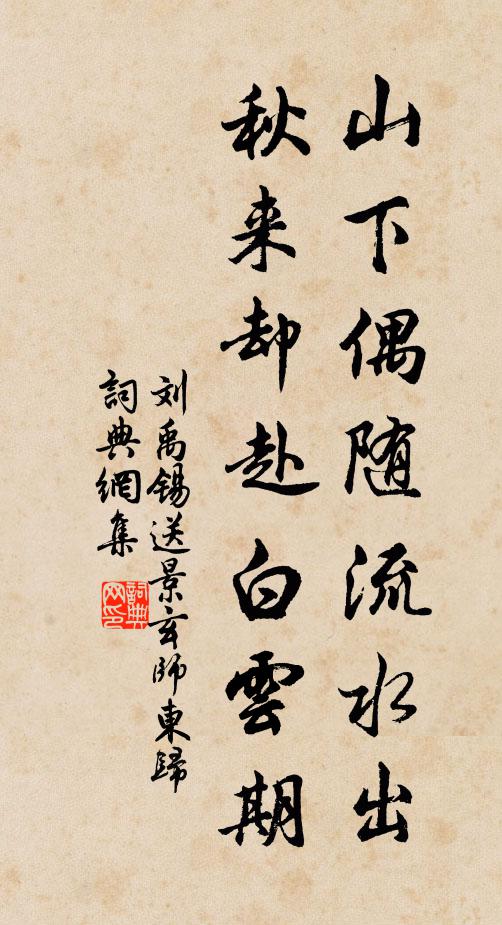 山下偶随流水出
秋来却赴白雲期
刘禹锡送景玄師東歸
詞典網集
詞典网印